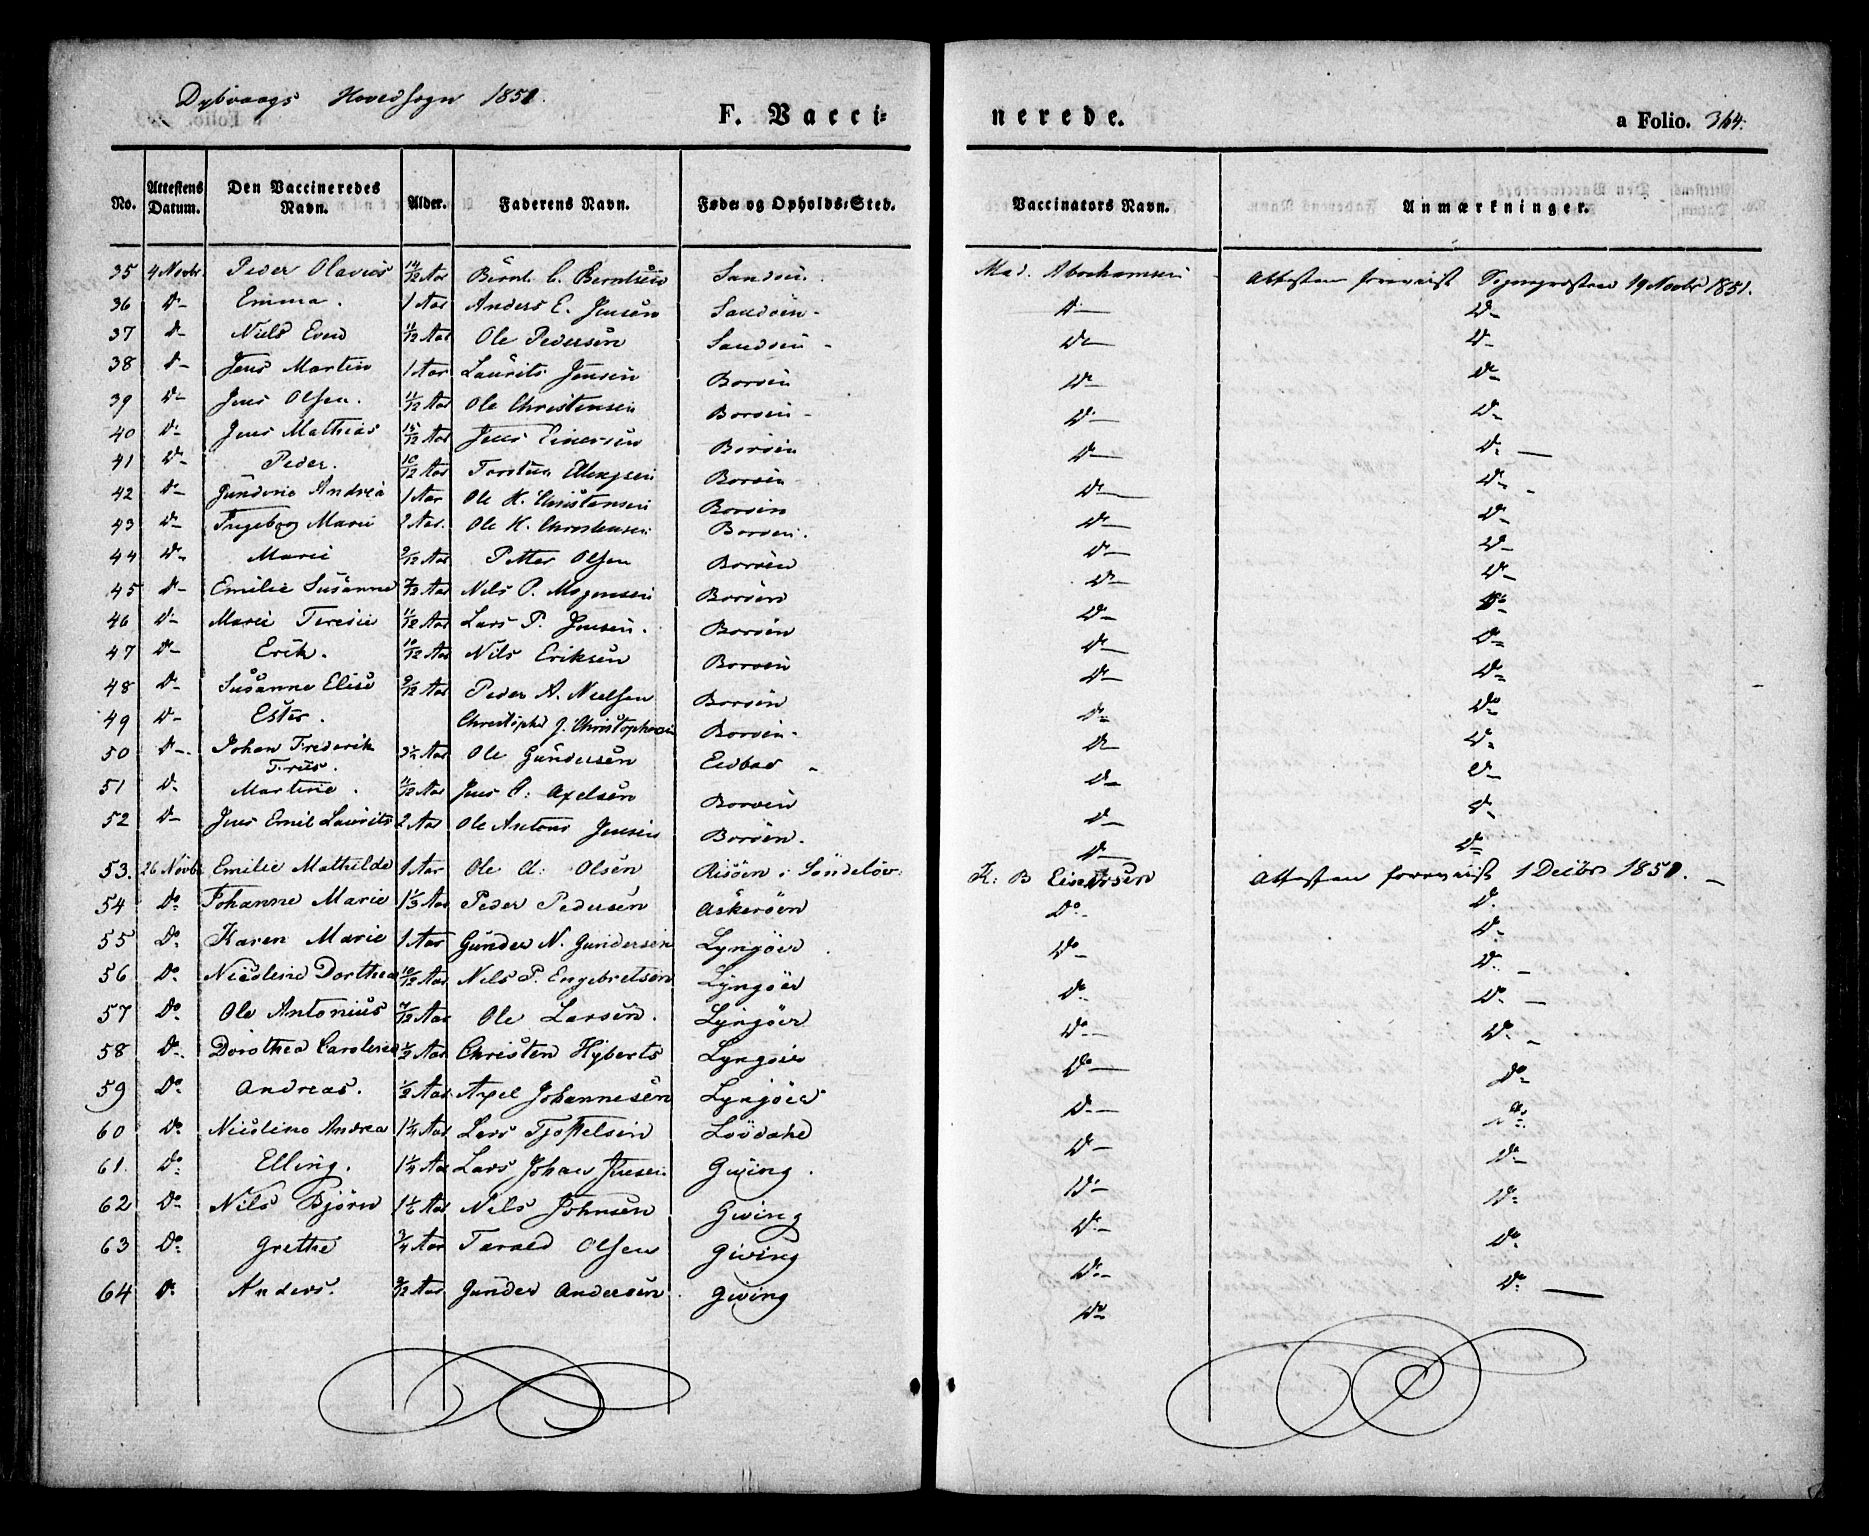 Dybvaags Hovedsogn 1851.
F. Vaccinerede.
a Folio. 364.
No. Attestens Datum. Den Vaccineredes Navn. Alder. Faderens Navn. Føde- og Opholds-Sted. Vaccinators Navn. Anmærkninger.
35 4 Novbr. Peder Olavus 14/12 Aar Bernt C. Berntsen Sandøen. Mad. Abrahamsen Attesten foreviist 19 Novbr 1851.
36 do Emma. 1 Aar Anders E. Jensen Sandøen do do
37 do Niels Even 11/12 Aar Ole Pedersen Sandøen do do
38 do Jens Martin 1 Aar Laurits Jensen Borøen do do
39 do Jens Olsen. 11/12 Aar Ole Christensen Borøen do do
40 do Jens Mathias 15/12 Aar Jens Einersen Borøen do do
41 do Peder. 10/12 Aar Torsten Ellingsen Borøen do do
42 do Gunderine Andrea 1 Aar Ole K. Christensen Borøen do do
43 do Ingeborg Marie 2 Aar. Ole K. Christensen Borøen. do do
44 do Marie 9/12 Aar Petter Olsen Borøen do do
45 do Emilie Susanne Aar Nils P. Mogensen Borøen do do
46 do Marie Teresie 11/12 Aar Lars P. Jensen. Borøen do do
47 do Erik. 10/12 Aar Nils Eriksen Borøen do do
48 do Susanne Elise 9/12 Aar Peder A. Nielsen Borøen do do
49 do Ester. Christopher J. Christophersen Borøen do do
50 do Johan Frederik Friis. 3½ Aar Ole Gundersen Eidbo do do
51 do Martine. 11/12 Aar Jens C. Axelsen Borøen do do
52 do Jens Emil Laurits 2 Aar Ole Anton Jensen Borøen. do do
53. 26 Novbr Emilie Mathilde 1 Aar Ole A: Olsen Risøen i Søndeløv. K: B Einersen Attesten foreviist 1 Decbr 1851.
54 Do Johanne Marie 1½ Aar Peder Pedersen Askerøen Do do
55 Do Karen Marie 1 Aar Gunder N. Gundersen Lyngøer Do do
56 Do Nicoline Dorthea 10/12 Aar Nels P. Engebretsen Lyngøer Do do
57 Do Ole Antonius 7/12 Aar Ole Larsen. Lyngøer Do Do
58 Do Dorothea Caroline ½ Aar Christen Hyberts Lyngøer Do Do
59 Do Andreas. ½ Aar Axel Johannesen Lyngøer Do Do
60 Do Nicoline Andrea 1¼ Aar Lars Tjostelsen Løvdahl Do Do
61. Do Elling. 1¼ Aar Lars Johan Jensen Gwing. Do Do
62 Do Nils Bjørn 1½ Aar Nils Johnsen Gwing Do Do
63 Do Grethe ¾ Aar Tarald Olsen Giving Do Do
64 Do Anders. 9/12 Aar Gunder Andersen Giving Do Do